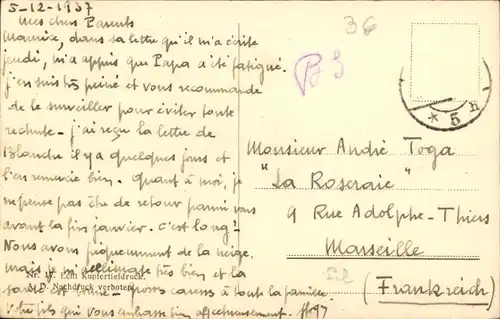 5-12-1937
Mes chers Parents
Maurice, dans sa lettre qu'il m'a écrite
jeudi, m'a appris que Papa a été fatigué.
j'en suis très peiné et vous recommande
de le surveiller pour éviter toute
rechute - j'ai reçu la lettre de
Blanche il y a quelques jours et
l'en remercie bien. Quant à moi, je
ne pense pas être de retour parmi vous
avant la fin janvier. c'est long!
Nous avons fréquemment de la neige,
mais je m'acclimate très bien et la
santé est bonne - Gros caress à toute la famille
Votre fils qui vous embrasse bien affectueusement.
Nr. 17. Echt Kupfertiefdruck.
Nachdruck verboten.
36
B 3
* 5 n
Monsieur André Toga
"La Roseraie"
9 Rue Adolphe-Thiers
Marseille
(Frankreich)